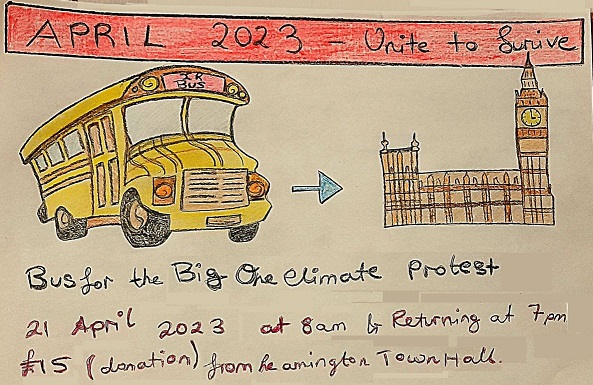 APRIL 2023 - Unite to Survive
XR
BUS
Bus for the Big One climate protest
21 April 2023 at 8am & Returning at 7pm
£15 (donation) from Leamington Town Hall.